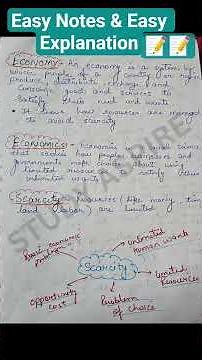 Easy Notes & Easy
Explanation 📝📝
ECONOMY:- An economy is a system by
which people of a country or region
produce, distribute, exchange and
consume goods and services to
satisfy their needs and wants.
• It shows how resources are managed
to avoid scarcity
ECONOMICS:- Economics is a social science
that studies how people, businesses and
government make choices about using
limited resources to satisfy their
unlimited wants.
Scarcity:- Resources (like money, time,
land, labor) are limited
Basic economic
problem
unlimited
human wants
Scarcity
limited
Resources
opportunity
cost
Problem
of choice